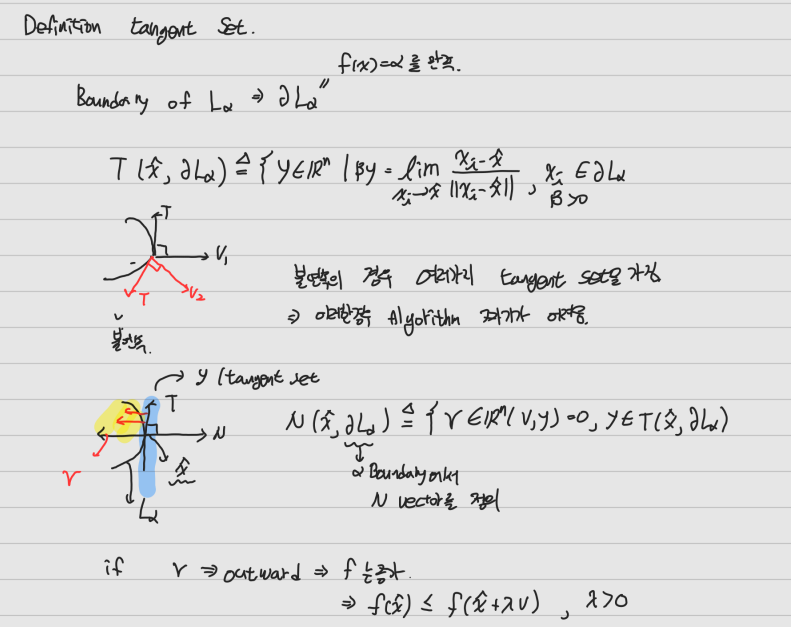 Definition tangent set.
f(x)=α를 만족.
Boundary of Lα ⇒ ∂Lα"
T(x̂, ∂Lα) ≜ { y∈ℝⁿ | βy = lim xᵢ→x̂ (xᵢ-x̂)/||xᵢ-x̂||, xᵢ ∈ ∂Lα
β>0
T
V₁
T
V₂
불연속의 경우 여러가지 tangent set을 가짐
⇒ 이러한경우 Algorithm 처리가 어려움.
불연속.
y (tangent set
T
N
N(x̂, ∂Lα) ≜ { v∈ℝⁿ(v,y)=0, y∈T(x̂, ∂Lα)
x̂
v
α Boundary에서
N vector를 정의
Lα
if v ⇒ outward ⇒ f는 증가.
⇒ f(x̂) ≤ f(x̂+λv), λ>0